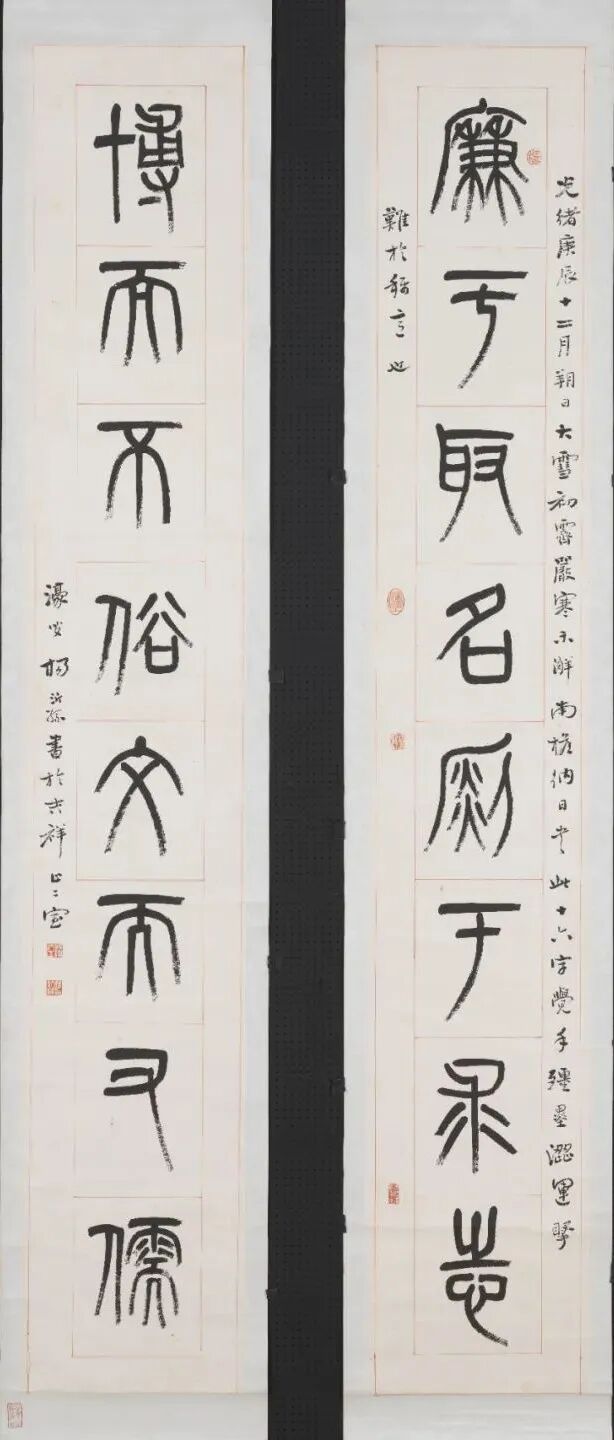 光緒庚辰十二月朔日大雪初霽嚴寒未解南檐納日書此十六字覺手殭墨澀運掔
廉于取名銳于求志
難於稱意也
博而不俗文而又儒
濠叟楊沂孫書於吉祥止止室